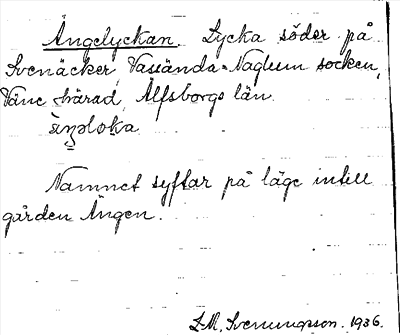 Ängelyckan. Lycka söder på
Svenäcker, Vassända-Naglum socken,
Väne härad, Älfsborgs län.
Namnet syftar på läge intill
gården Ängen.
Svenungsson. 1936.